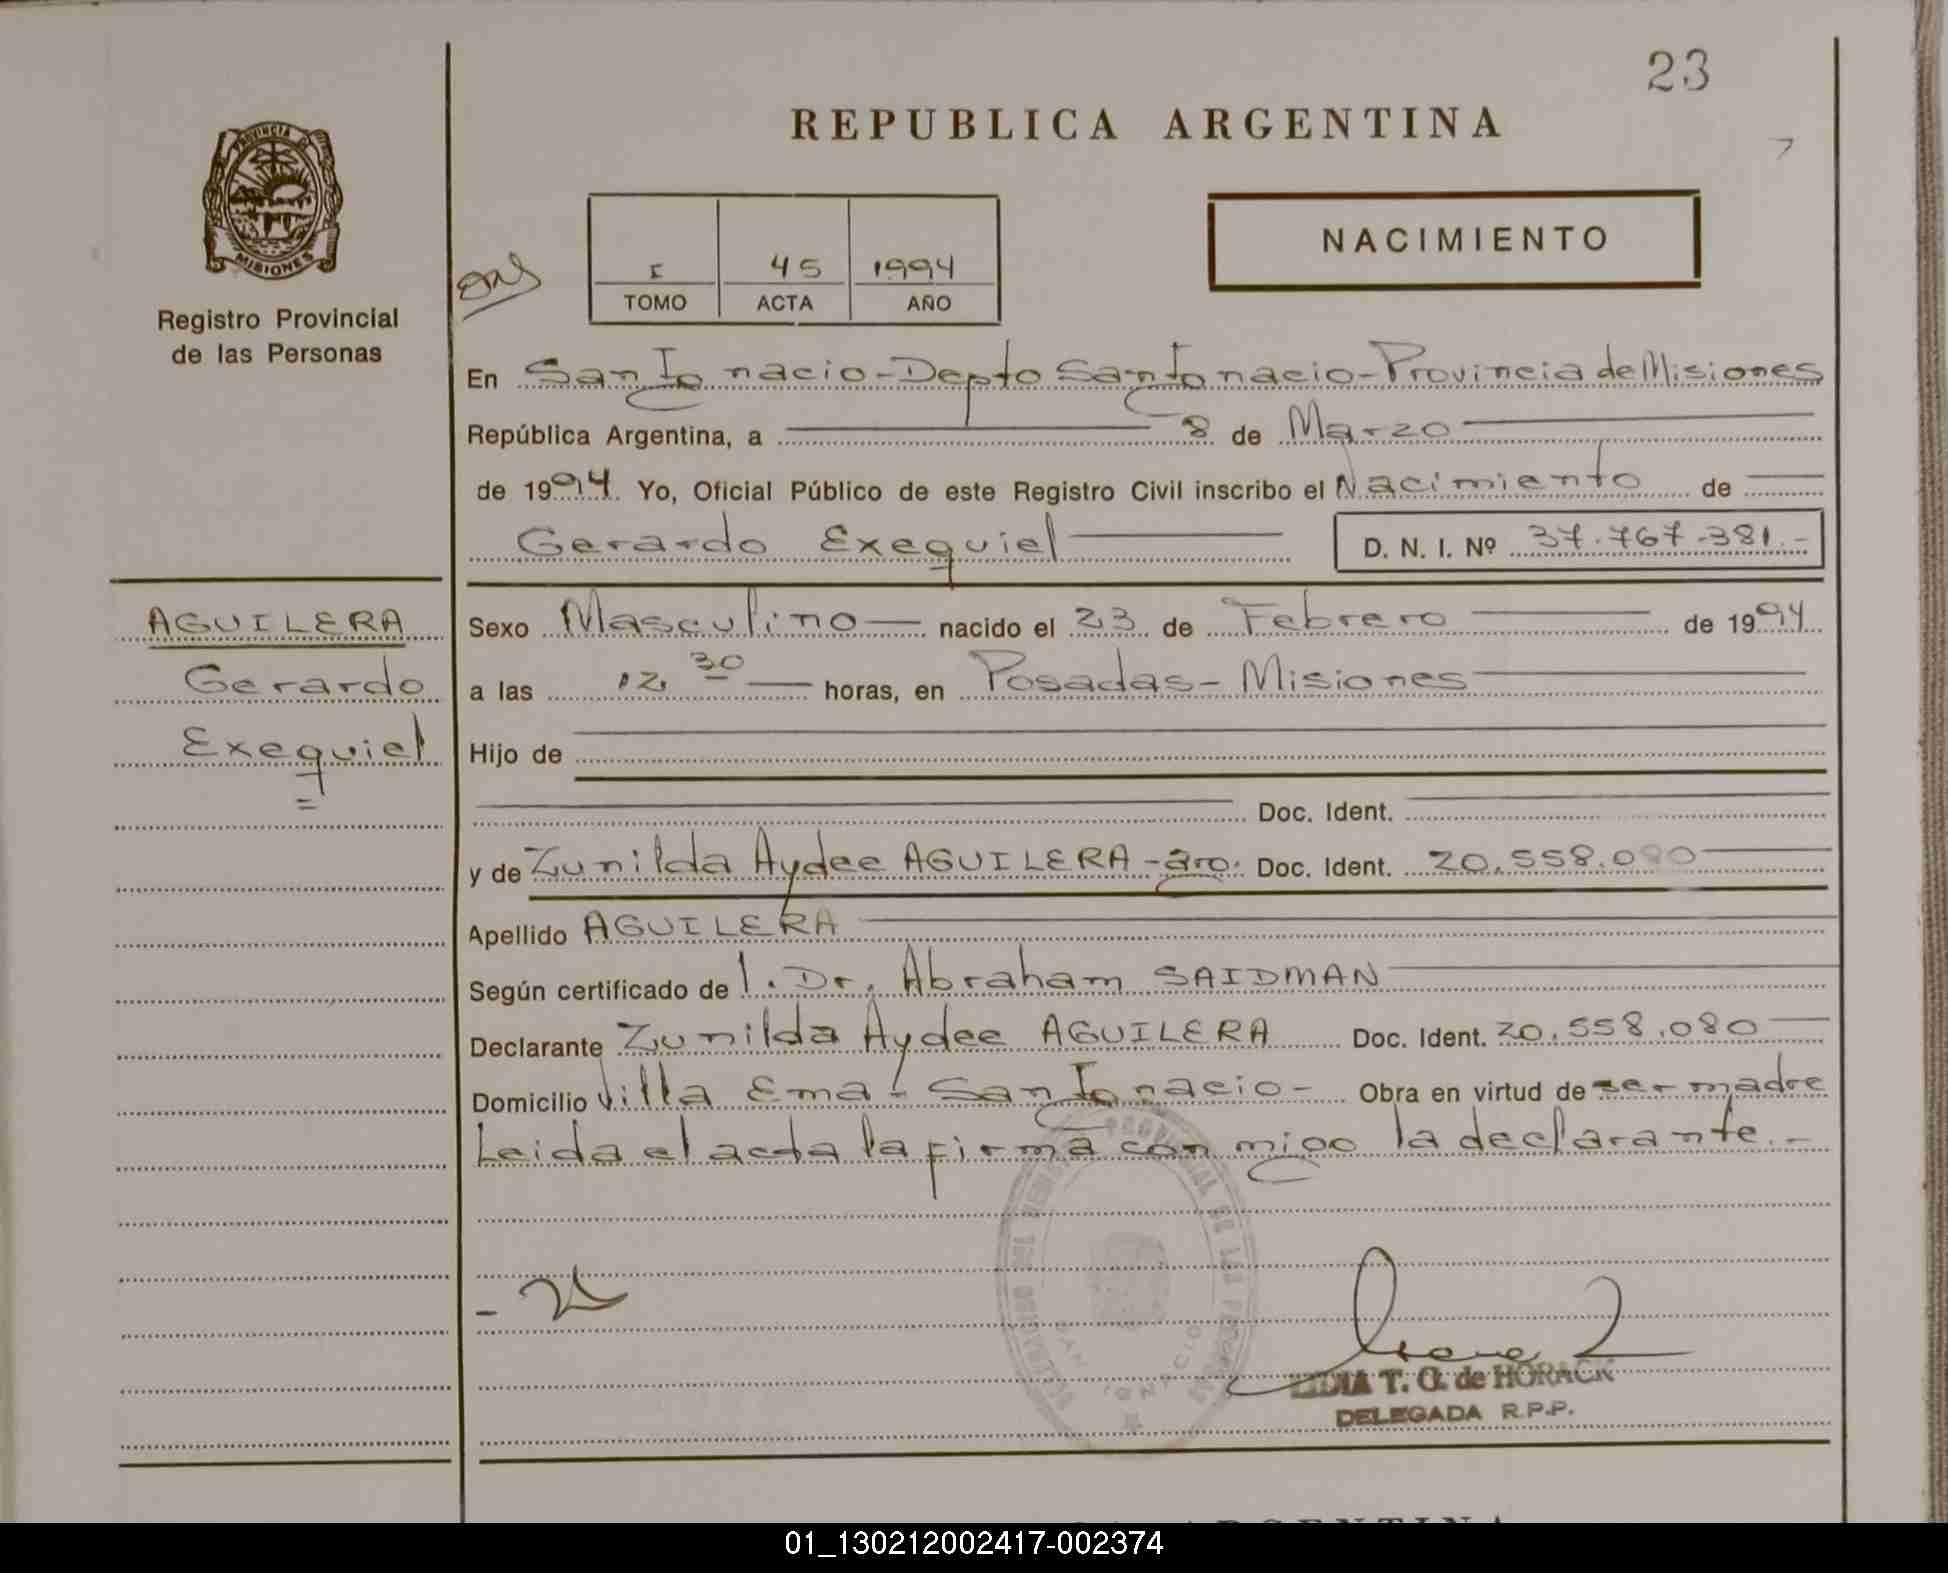 23
REPUBLICA ARGENTINA
PROVINCIA D
MISIONES
Registro Provincial
de las Personas
I 45 1994
TOMO ACTA AÑO
NACIMIENTO
En San Ignacio-Depto San Ignacio-Provincia de Misiones
República Argentina, a 8 de Marzo
de 1994 Yo, Oficial Público de este Registro Civil inscribo el Nacimiento de
Gerardo Exequiel D. N. I. Nº 37.767.381.-
AGUILERA
Gerardo
Exequiel
=
Sexo Masculino nacido el 23 de Febrero de 1994
a las 12,30 horas, en Posadas-Misiones
Hijo de
Doc. Ident.
y de Zunilda Aydee AGUILERA-arg. Doc. Ident. 20.558.080
Apellido AGUILERA
Según certificado de l. Dr. Abraham SAIDMAN
Declarante Zunilda Aydee AGUILERA Doc. Ident. 20.558.080
Domicilio Villa Ema-San Ignacio- Obra en virtud de ser madre
Leida el acta la firma con migo la declarante.-
SAN IGNACIO
LIDIA T. G. de HORACK
DELEGADA R.P.P.
01_130212002417-002374